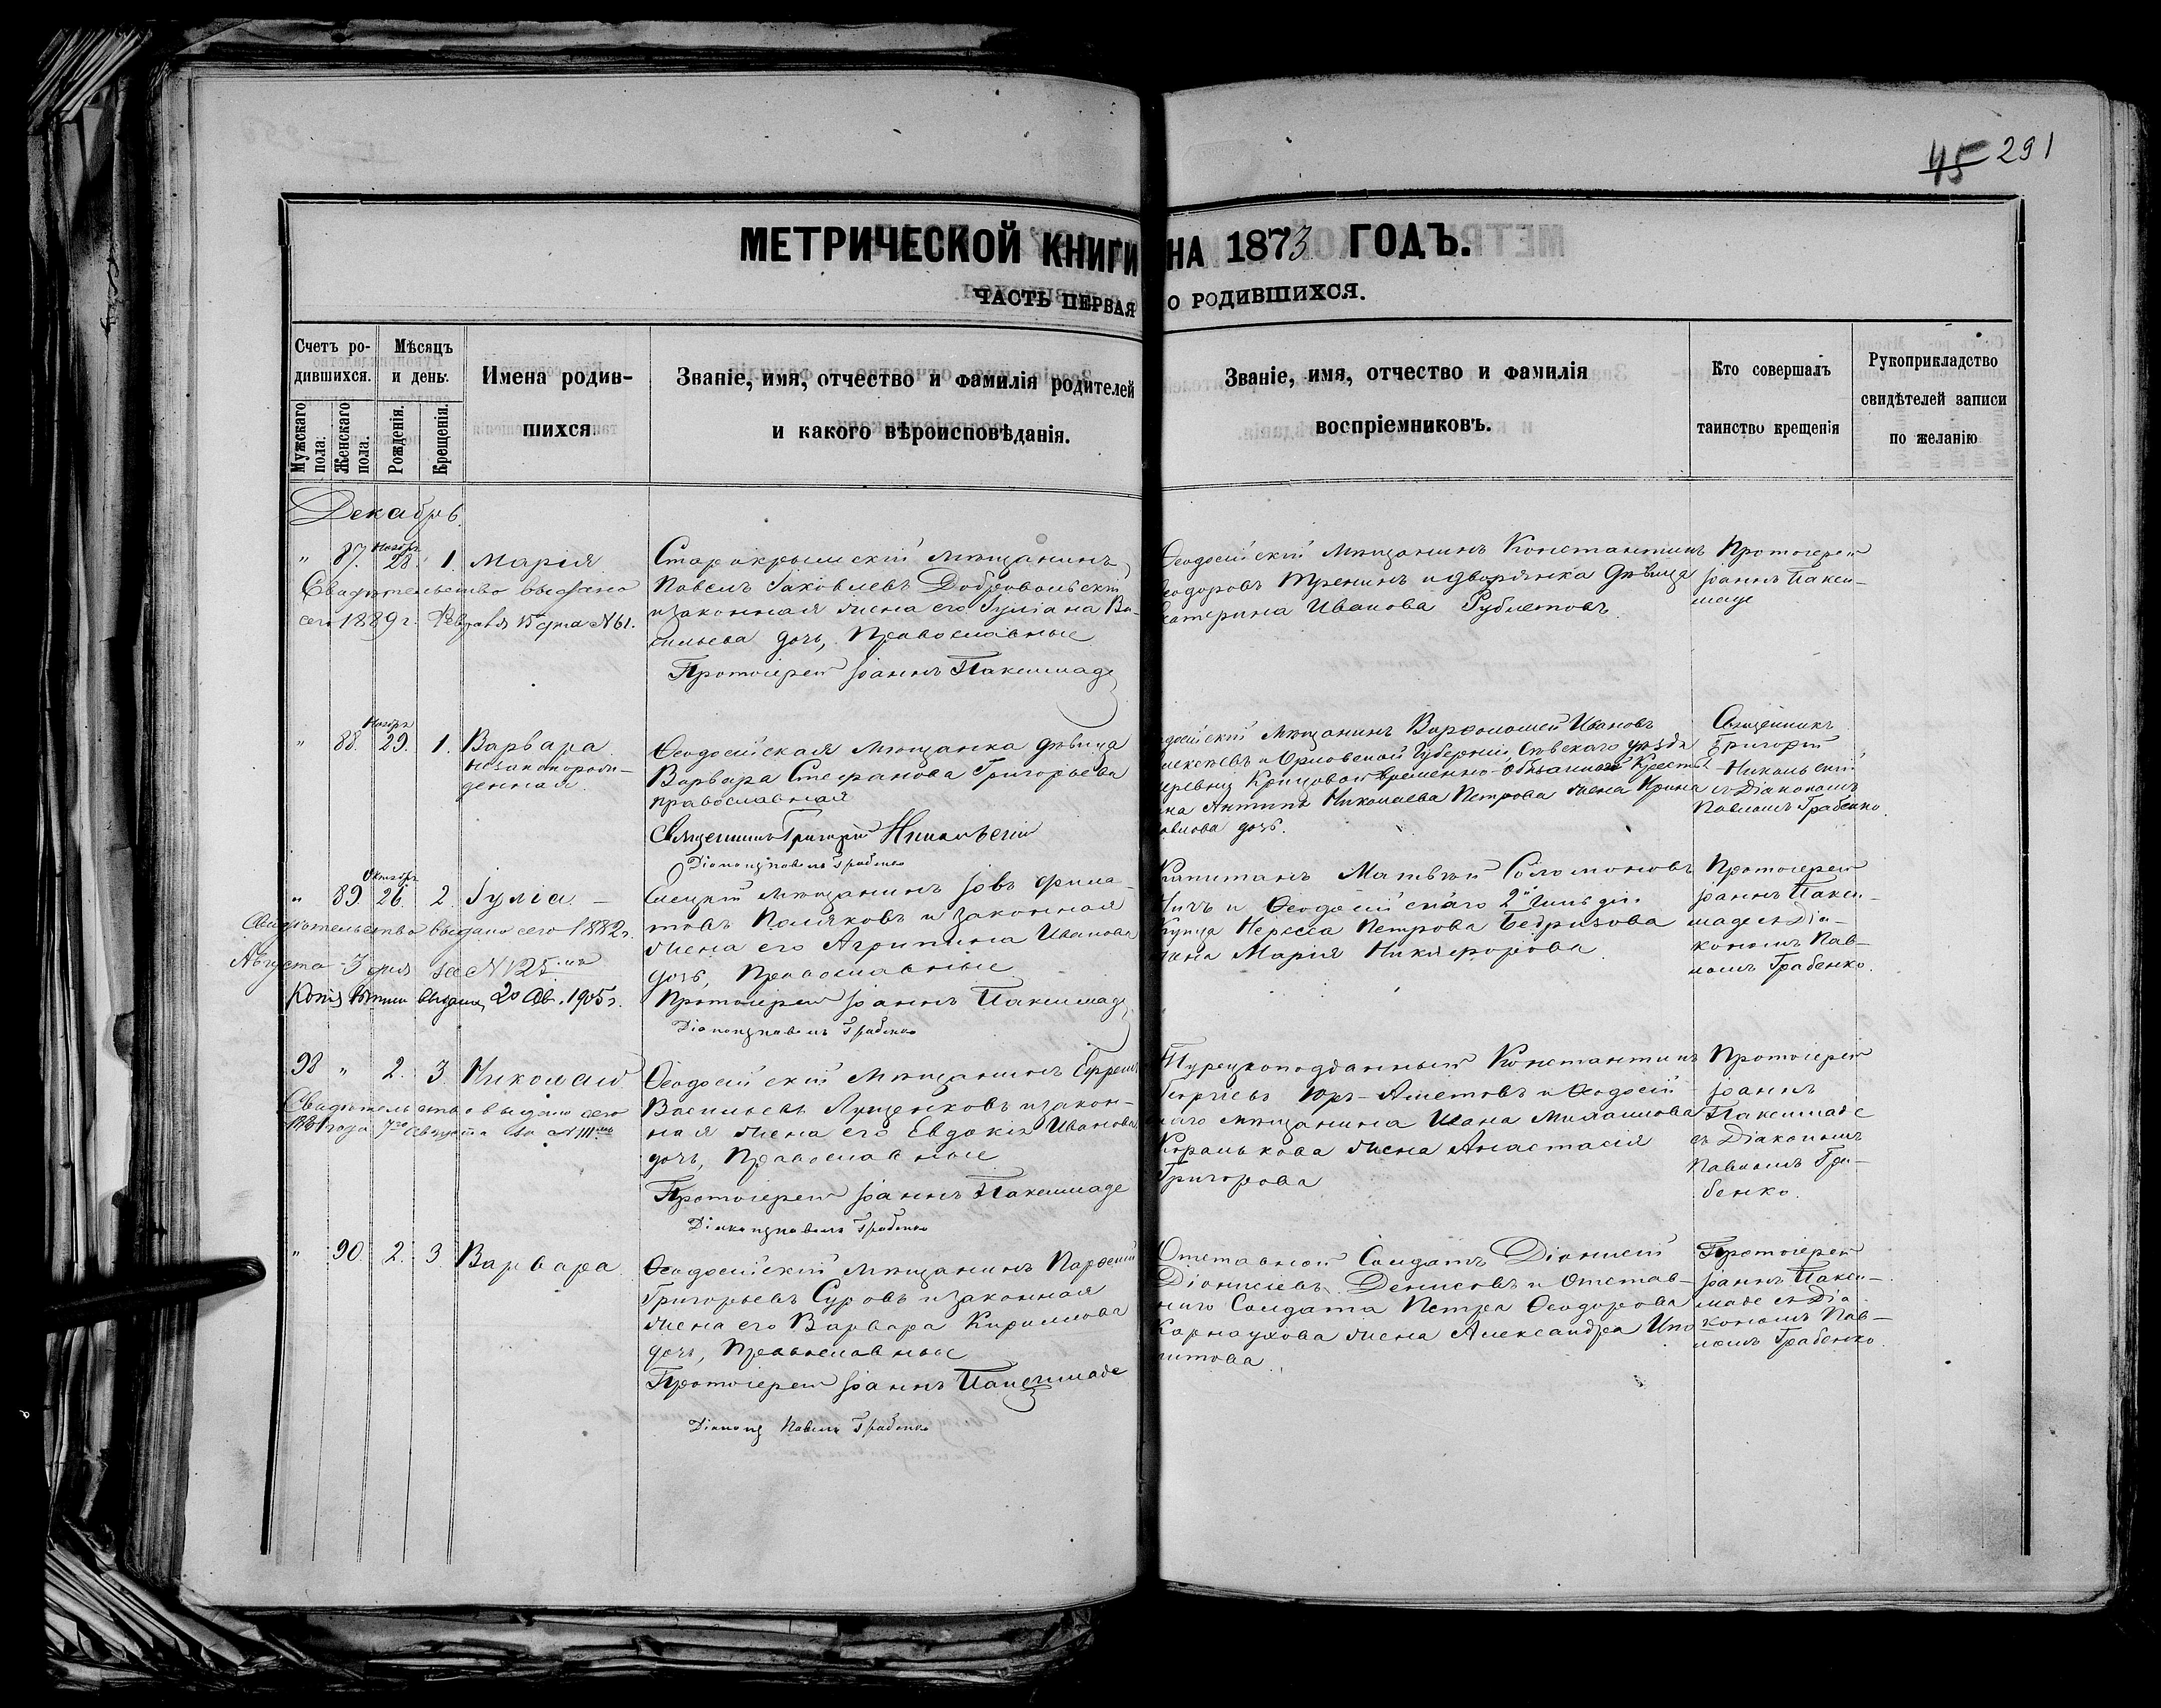 45 291
МЕТРИЧЕСКОЙ КНИГИ НА 1873 ГОДЪ.
ЧАСТЬ ПЕРВАЯ О РОДИВШИХСЯ.
Счетъ ро-
дившихся.
Мужскаго пола.
Женскаго пола.
Мѣсяцъ
и день.
Рожденія.
Крещенія.
Имена родив-
шихся
Званіе, имя, отчество и фамилія родителей
и какого вѣроисповѣданія.
Званіе, имя, отчество и фамилія
воспріемниковъ.
Кто совершалъ
таинство крещенія
Рукоприкладство
свидѣтелей записи
по желанію
Декабрь
" 87. Ноябрь 28. 1. Марія
Свидѣтельство выдано
сего 1889 г. Февраля 15 дня № 61.
Старокрымскій мѣщанинъ
Павелъ Іаковлевъ Добровольскій
и законная жена его Іуліана Ва-
сильева дочь, Православные
Протоіерей Іоаннъ Паксимаде
Ѳеодосійскій мѣщанинъ Константинъ
еодоровъ и дворянка дѣвица
катерина Иванова
Протоіерей
Іоаннъ Пакси-
маде
" 88. Ноябрь 29. 1. Варвара
незаконорож-
денная
Ѳеодосійская мѣщанка дѣвица
Варвара Стефанова Григорьева
православная
Священникъ Григорій Никольскій
Діаконъ Павелъ Грабенко
досійскій мѣщанинъ Варѳоломей Ивановъ
лексѣевъ и Орловской Губерніи, Сѣвскаго уѣзда
деревни временно-обязаннаго Крестья
на Антипа Николаева Петрова жена Ирина
авлова дочь.
Священникъ
Григорій
Никольскій
съ Діакономъ
Павломъ Грабенко.
" 89. Октябрь 26. 2. Іулія. –
Свидѣтельство выдано сего 1882 г.
Августа 3 дня за № 125.мъ
Копія выдана 20 Ав. 1905 г.
мѣщанинъ Іовъ Фила-
товъ Поляковъ и законная
жена его Агрипина Иванова
дочь, Православные
Протоіерей Іоаннъ Паксимаде
Діаконъ Павелъ Грабенко
Капитанъ Матвѣй Соломоновъ
ичъ и Ѳеодосійскаго 2й гильдіи
Купца Нересса Петрова
жена Марія Никифорова.
Протоіерей
Іоаннъ Пакси-
маде съ Діа-
кономъ Пав-
ломъ Грабенко.
98 " 2. 3. Николай
Свидѣтельство выдано сего
1881 года 7го Августа за № 111.мъ
Ѳеодосійскій мѣщанинъ Ефремъ
Васильевъ Лущенковъ и закон-
ная жена его Евдокія Иванова
дочь, Православные
Протоіерей Іоаннъ Паксимаде
Діаконъ Павелъ Грабенко
Турецкоподданный Константинъ
Георгіевъ и Ѳеодосій
скаго мѣщанина Ивана Михайлова
жена Анастасія
Григорова
Протоіерей
Іоаннъ
Паксимаде
съ Діакономъ
Павломъ Гра-
бенко.
" 90. 2. 3. Варвара
Ѳеодосійскій мѣщанинъ Парѳеній
Григорьевъ Суровъ и законная
жена его Варвара Кириллова
дочь, Православные
Протоіерей Іоаннъ Паксимаде
Діаконъ Павелъ Грабенко
Отставной Солдатъ Діонисій
Діонисіевъ Денисовъ и Отстав-
ного Солдата Петра Ѳеодорова
Карнаухова жена Александра Ипо
литова.
Протоіерей
Іоаннъ Пакси-
маде съ Діа
кономъ Пав-
ломъ Грабенко.